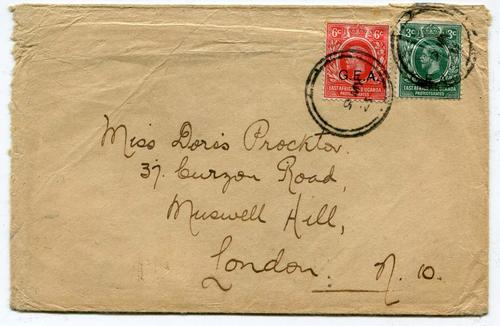 6c 6c
G.E.A.
EAST AFRICA AND UGANDA
PROTECTORATES
3c 3c
EAST AFRICA AND UGANDA
PROTECTORATES
Miss Doris Prockter.
37. Curzon Road,
Muswell Hill,
London. N. 10.